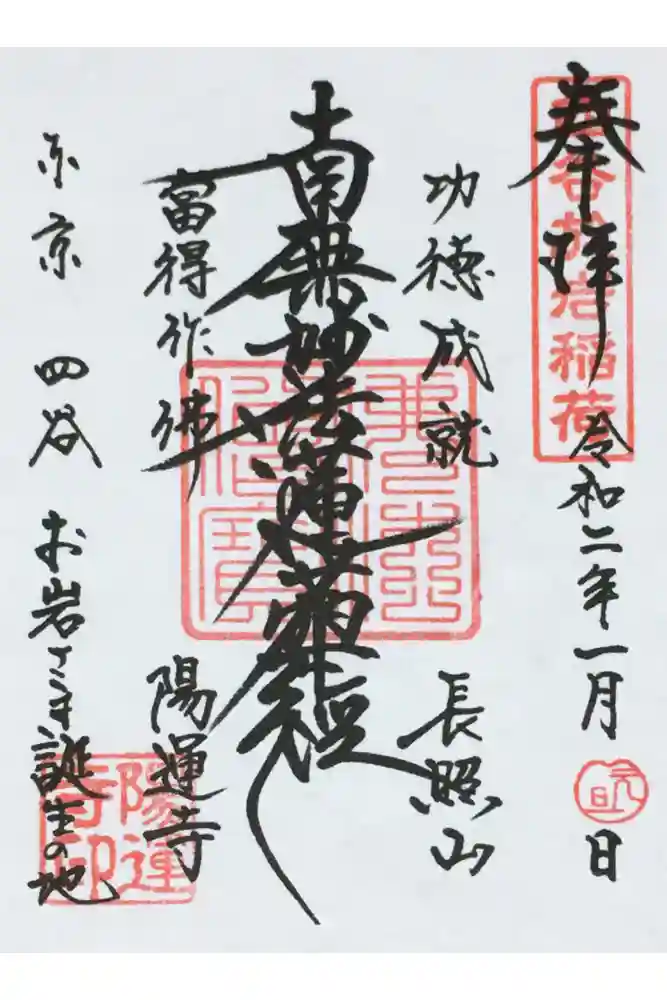 奉拝
四谷於岩稲荷
令和二年一月
元旦
日
功徳成就
長照山
南無妙法蓮華経
當得作佛
陽運寺
東京 四谷 お岩さま誕生の地
陽運寺印